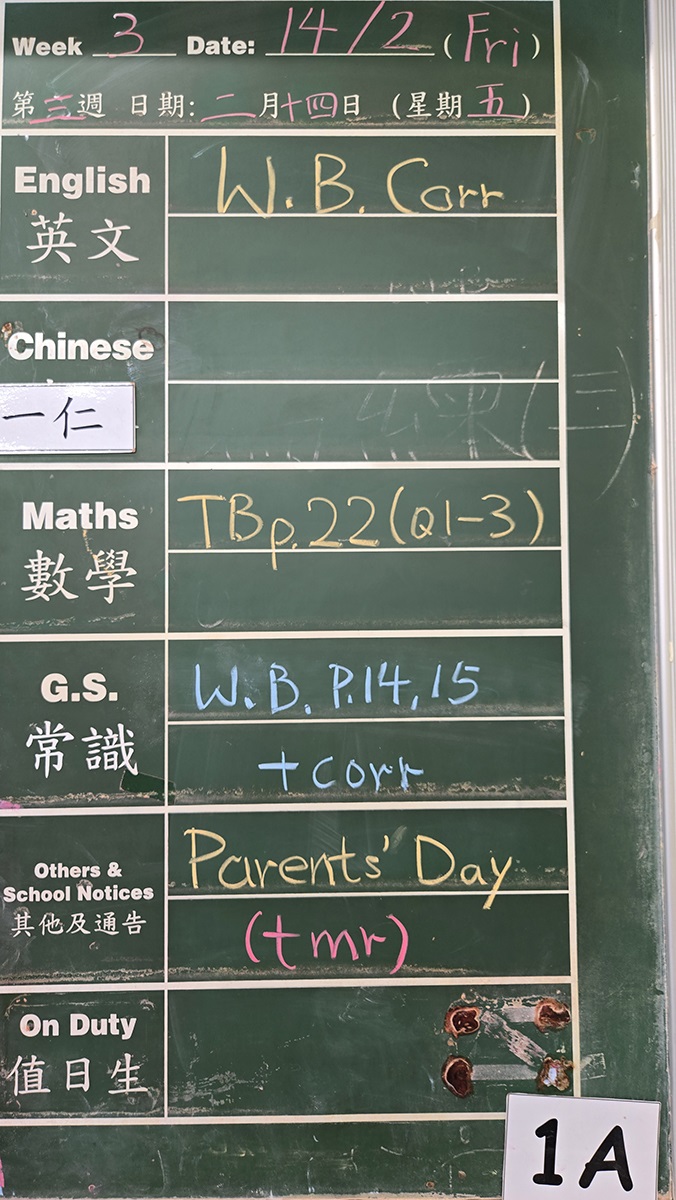 Week 3 Date: 14/2 (Fri)
第三週 日期: 二月十四日 (星期五)
English W.B. Corr
英文
Chinese
一仁
Maths TB p.22 (Q1-3)
數學
G.S. W.B. P.14, 15
常識 + corr
Others &
School Notices Parents' Day
其他及通告 (tmr)
On Duty
值日生
1A